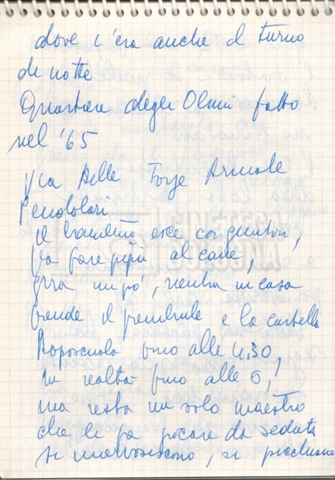 dove c'era anche il turno
di notte
Quartiere degli Olmi fatto
nel '65
Via delle Forze Armate
Pendolari
Il bambino esce coi genitori,
fa fare pipì al cane,
gira un po', rientra in casa
prende il grembiule e la cartella
Doposcuola fino alle 4,30,
in realtà fino alle 5,
ma resta un solo maestro
che li fa giocare da seduti
si innervosiscono, si picchiano